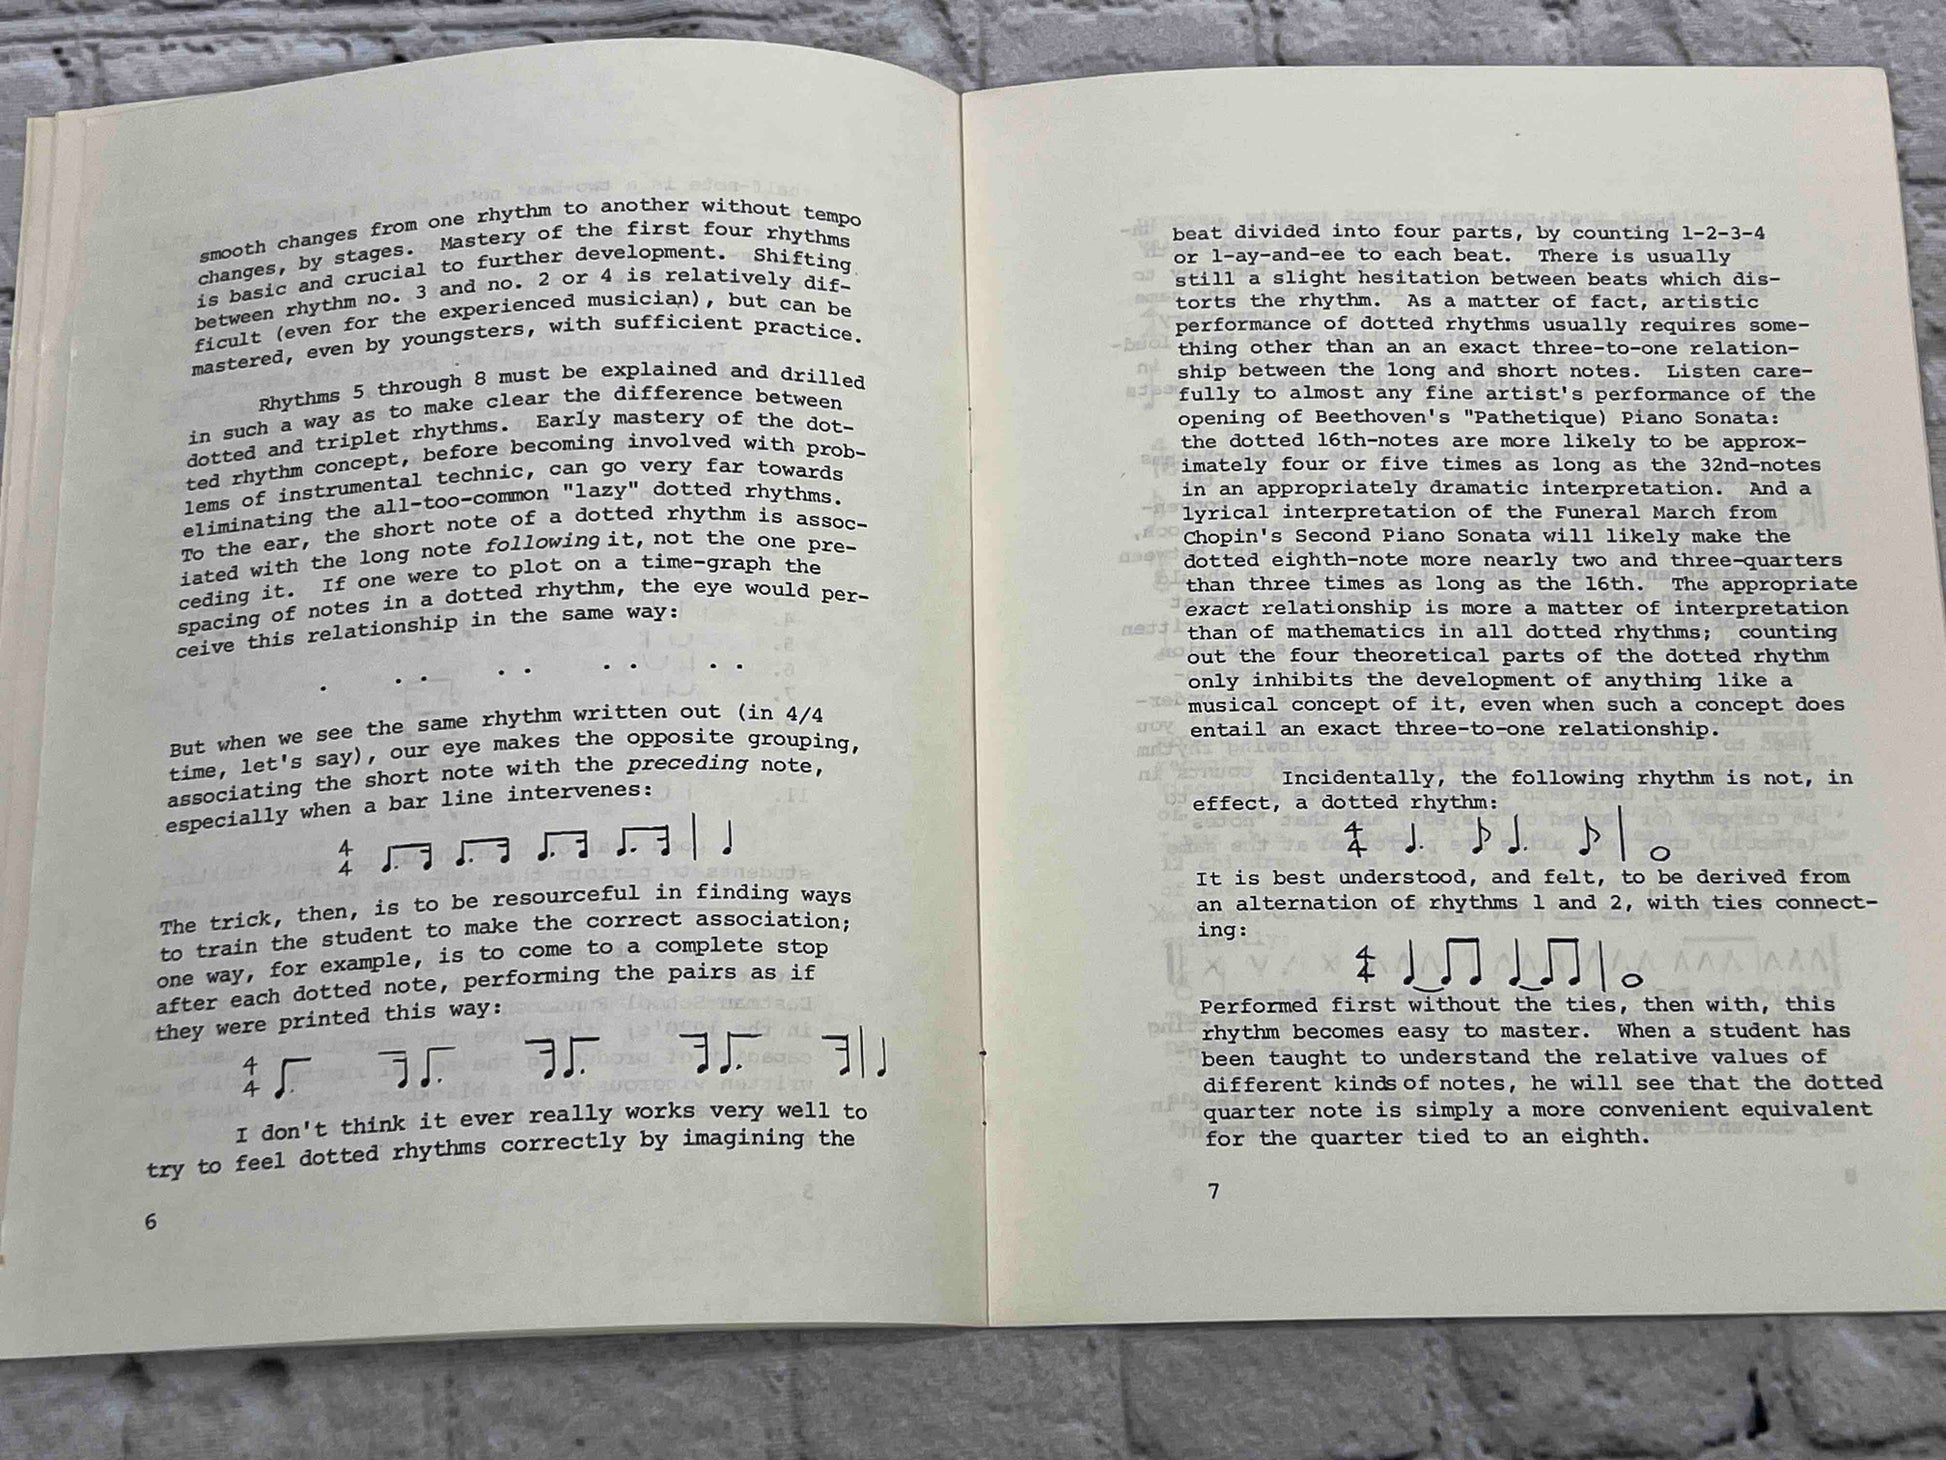 smooth changes from one rhythm to another without tempo
changes, by stages. Mastery of the first four rhythms
is basic and crucial to further development. Shifting
between rhythm no. 3 and no. 2 or 4 is relatively dif-
ficult (even for the experienced musician), but can be
mastered, even by youngsters, with sufficient practice.
Rhythms 5 through 8 must be explained and drilled
in such a way as to make clear the difference between
dotted and triplet rhythms. Early mastery of the dot-
ted rhythm concept, before becoming involved with prob-
lems of instrumental technic, can go very far towards
eliminating the all-too-common "lazy" dotted rhythms.
To the ear, the short note of a dotted rhythm is assoc-
iated with the long note following it, not the one pre-
ceding it. If one were to plot on a time-graph the
spacing of notes in a dotted rhythm, the eye would per-
ceive this relationship in the same way:
But when we see the same rhythm written out (in 4/4
time, let's say), our eye makes the opposite grouping,
associating the short note with the preceding note,
especially when a bar line intervenes:
4
4
The trick, then, is to be resourceful in finding ways
to train the student to make the correct association;
one way, for example, is to come to a complete stop
after each dotted note, performing the pairs as if
they were printed this way:
4
4
I don't think it ever really works very well to
try to feel dotted rhythms correctly by imagining the
6
beat divided into four parts, by counting 1-2-3-4
or 1-ay-and-ee to each beat. There is usually
still a slight hesitation between beats which dis-
torts the rhythm. As a matter of fact, artistic
performance of dotted rhythms usually requires some-
thing other than an an exact three-to-one relation-
ship between the long and short notes. Listen care-
fully to almost any fine artist's performance of the
opening of Beethoven's "Pathetique) Piano Sonata:
the dotted 16th-notes are more likely to be approx-
imately four or five times as long as the 32nd-notes
in an appropriately dramatic interpretation. And a
lyrical interpretation of the Funeral March from
Chopin's Second Piano Sonata will likely make the
dotted eighth-note more nearly two and three-quarters
than three times as long as the 16th. The appropriate
exact relationship is more a matter of interpretation
than of mathematics in all dotted rhythms; counting
out the four theoretical parts of the dotted rhythm
only inhibits the development of anything like a
musical concept of it, even when such a concept does
entail an exact three-to-one relationship.
Incidentally, the following rhythm is not, in
effect, a dotted rhythm:
4
4
It is best understood, and felt, to be derived from
an alternation of rhythms 1 and 2, with ties connect-
ing:
4
4
Performed first without the ties, then with, this
rhythm becomes easy to master. When a student has
been taught to understand the relative values of
different kinds of notes, he will see that the dotted
quarter note is simply a more convenient equivalent
for the quarter tied to an eighth.
7